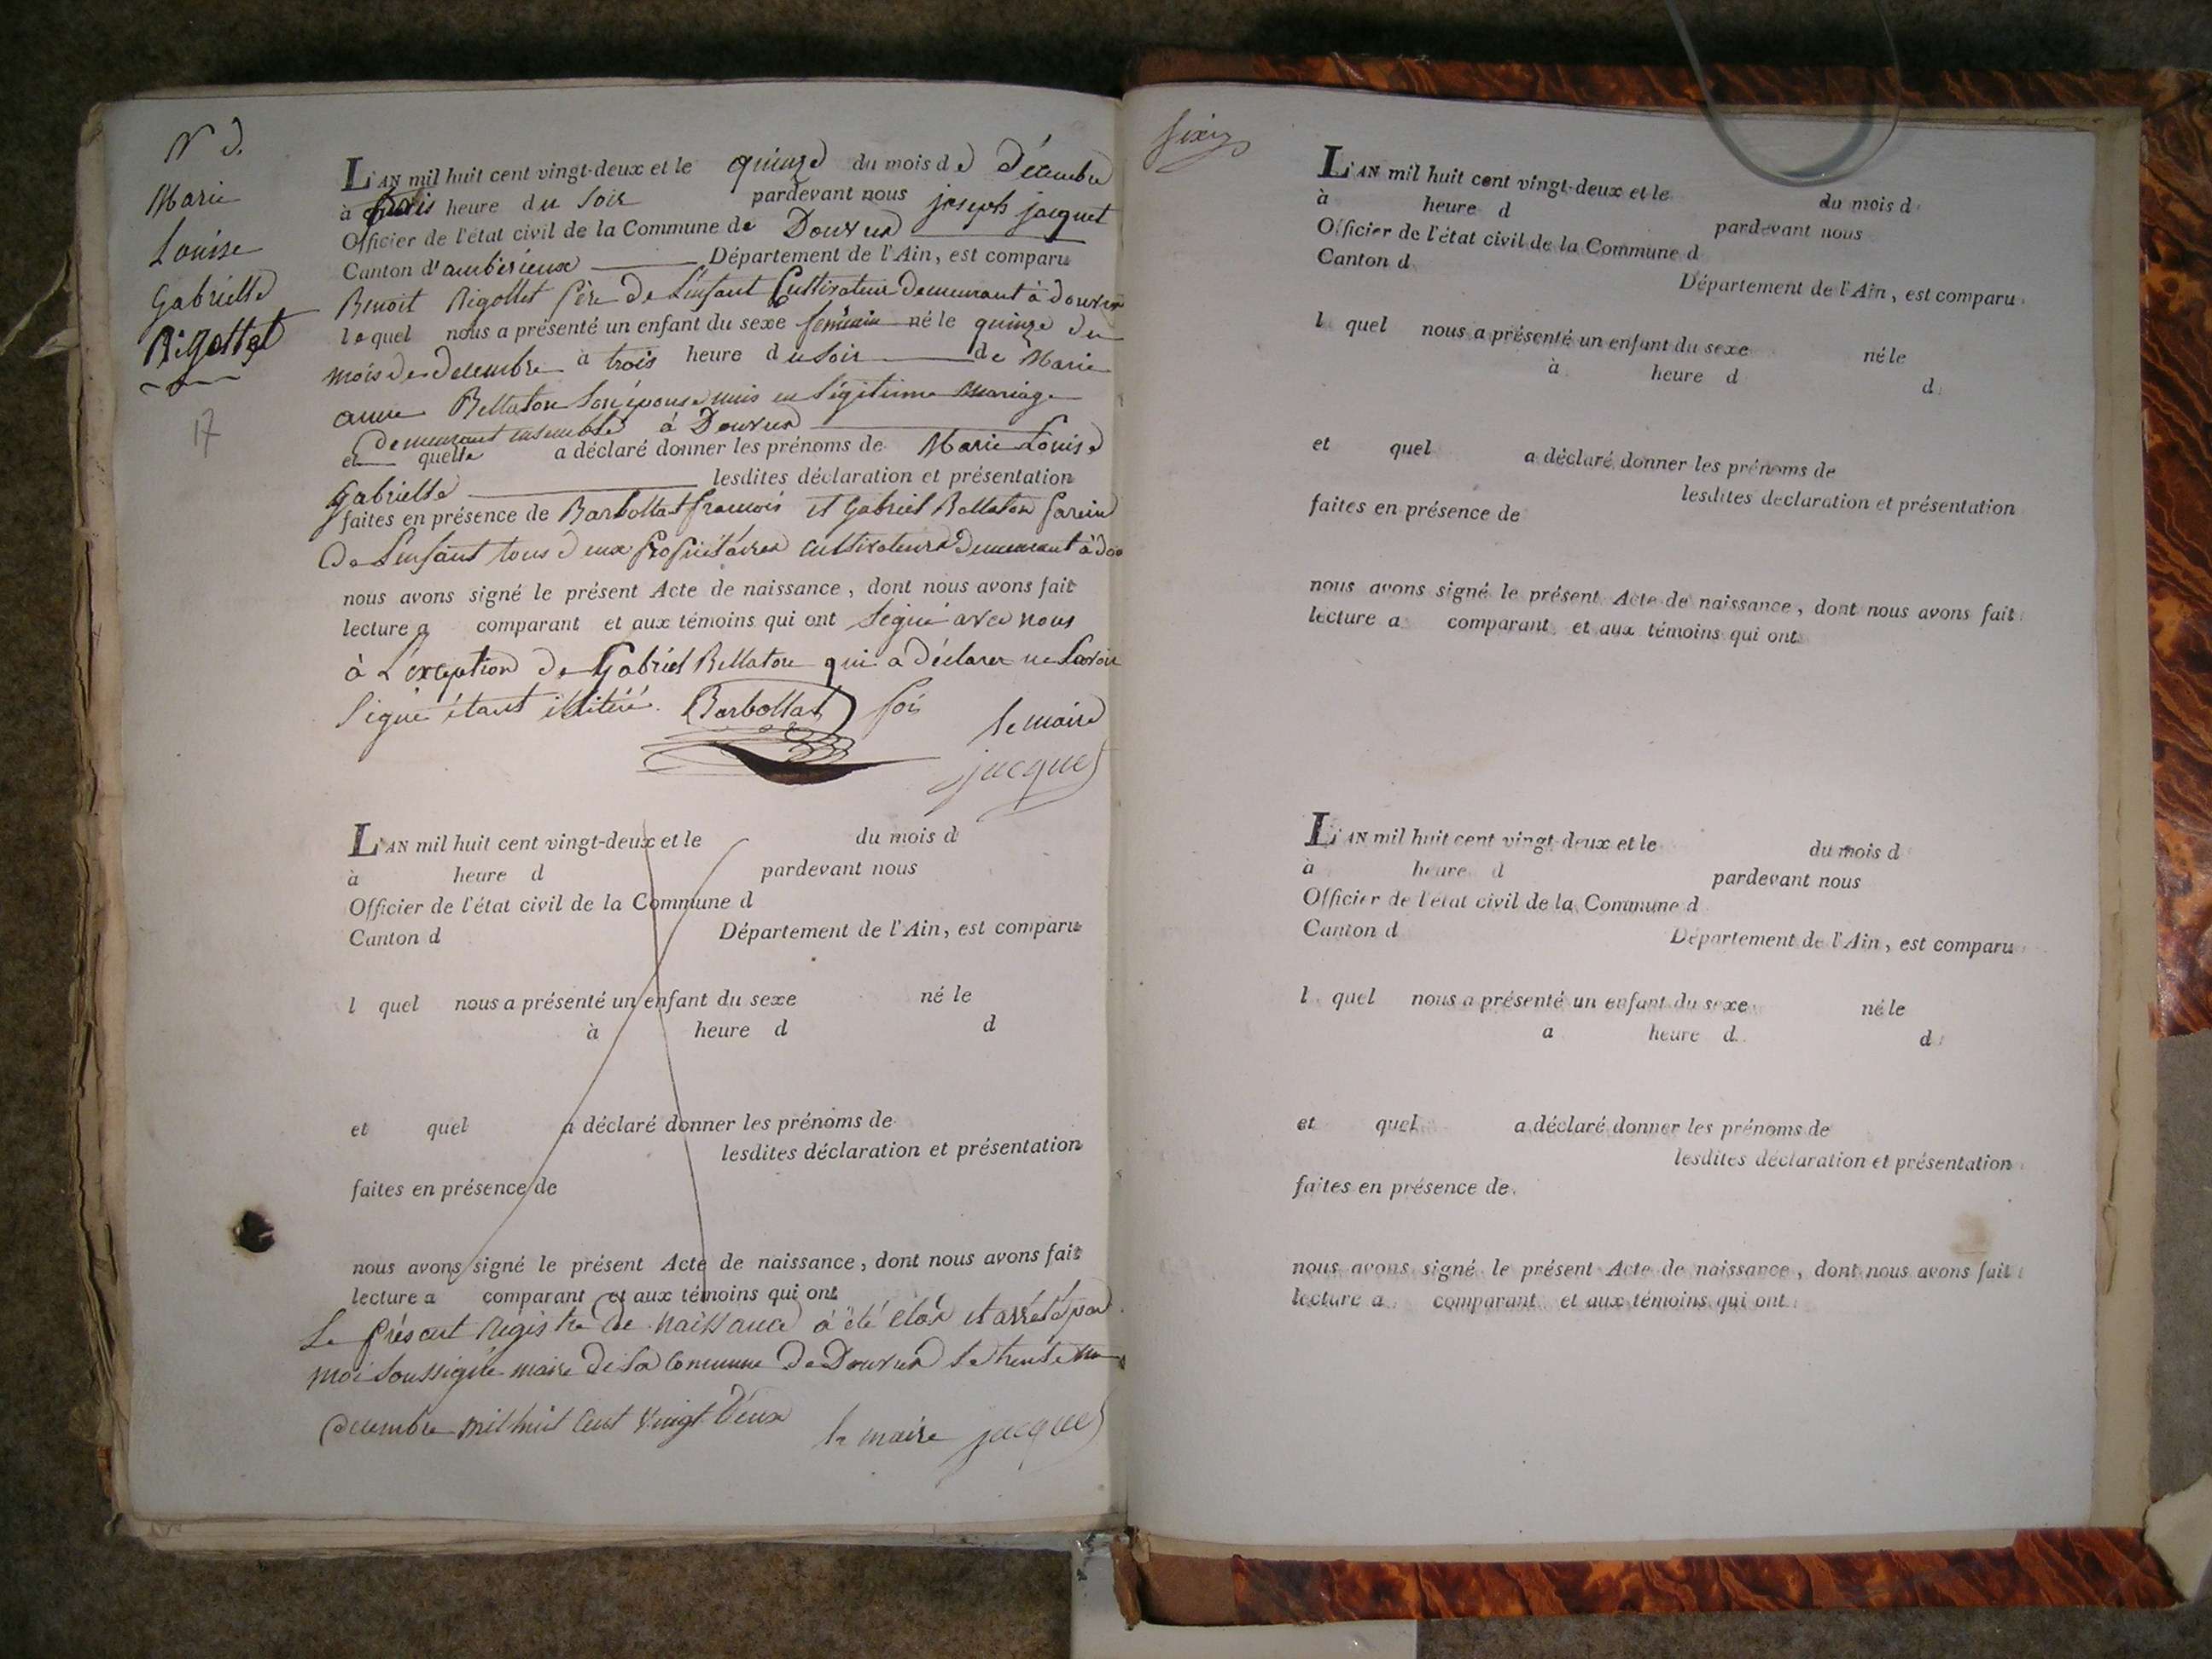 N d.
Marie
Louise
Gabrielle
Rigottet
17
L'AN mil huit cent vingt-deux et le quinze du mois de décembre
à heure du soir pardevant nous joseph jacquet
Officier de l'état civil de la Commune de Douvres
Canton d'ambérieux Département de l'Ain, est comparu
Benoit Rigollet père de L'enfant Cultivateur demeurant à douvres
lequel nous a présenté un enfant du sexe féminin né le quinze du
mois de decembre à trois heure du soir de Marie
anne Bellaton son épouse unis en légitime mariage
demeurant ensemble à Douvres
et quelle a déclaré donner les prénoms de Marie Louise
gabrielle lesdites déclaration et présentation
faites en présence de Barbollat francois et Gabriel Bellaton parein
De L'enfant tous deux propriétaires cultivateurs demeurant à dou
nous avons signé le présent Acte de naissance, dont nous avons fait
lecture a comparant et aux témoins qui ont signé avec nous
à L'exception de Gabriel Bellaton qui a déclarer ne savoir
signé étant illitéré. Barbollat fois le maire
jacquet
L'AN mil huit cent vingt-deux et le du mois d
à heure d pardevant nous
Officier de l'état civil de la Commune d
Canton d Département de l'Ain, est comparu
l quel nous a présenté un enfant du sexe né le
à heure d d
et quel a déclaré donner les prénoms de
lesdites déclaration et présentation
faites en présence de
nous avons signé le présent Acte de naissance, dont nous avons fait
lecture a comparant et aux témoins qui ont
Le présent Régistre de naissance à été clos et arrêté par
moi soussigné maire de la Commune de Douvres le trente un
decembre mil huit cent vingt deux le maire jacquet
L'AN mil huit cent vingt-deux et le du mois d
à heure d pardevant nous
Officier de l'état civil de la Commune d
Canton d Département de l'Ain, est comparu
l quel nous a présenté un enfant du sexe né le
à heure d d
et quel a déclaré donner les prénoms de
lesdites declaration et présentation
faites en présence de
nous avons signé le présent Acte de naissance, dont nous avons fait
lecture a comparant et aux témoins qui ont
L'AN mil huit cent vingt-deux et le du mois d
à heure d pardevant nous
Officier de l'état civil de la Commune d
Canton d Département de l'Ain, est comparu
l quel nous a présenté un enfant du sexe né le
a heure d d
et quel a déclaré donner les prénoms de
lesdites déclaration et présentation
faites en présence de
nous avons signé le présent Acte de naissance, dont nous avons fait
lecture a comparant et aux témoins qui ont